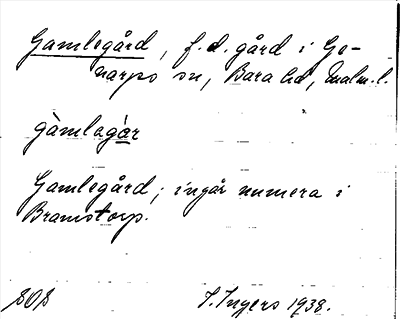 Gamlegård, f.d. gård i Ge-
narps sn, Bara hd, Malm. l.
gàmlagár
Gamlegård; ingår numera i
Bramstorp.
SOS
I. Ingers 1938.